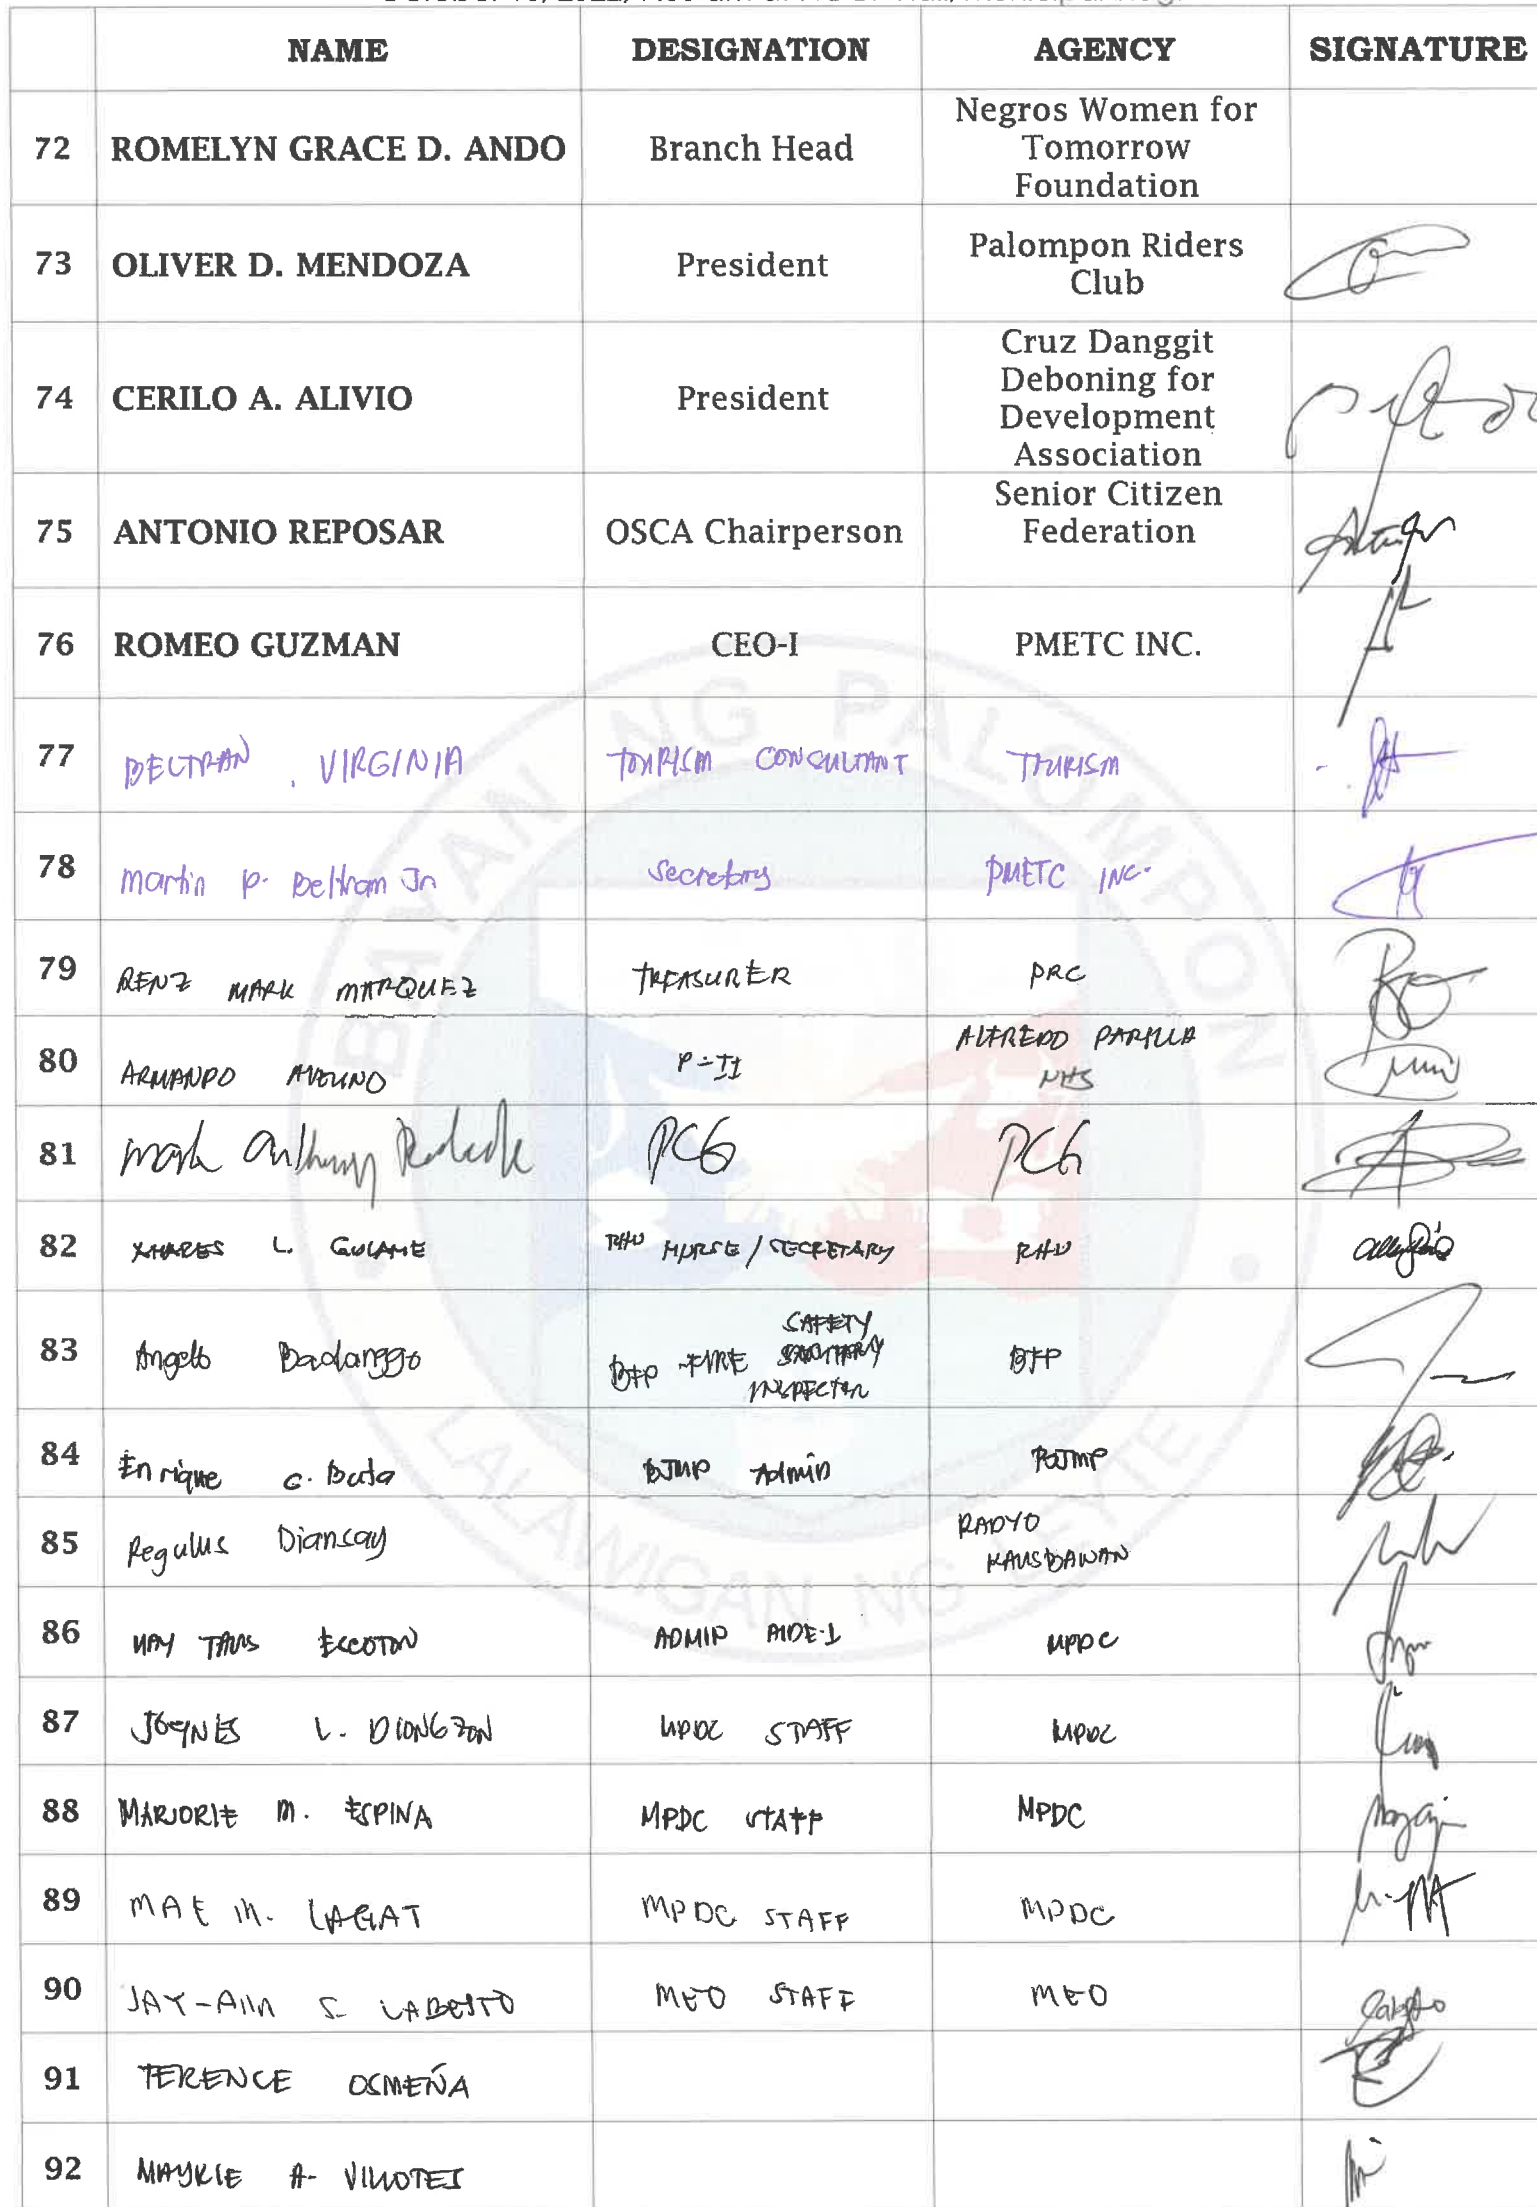 NAME DESIGNATION AGENCY SIGNATURE
72 ROMELYN GRACE D. ANDO Branch Head Negros Women for
Tomorrow
Foundation
73 OLIVER D. MENDOZA President Palompon Riders
Club
74 CERILO A. ALIVIO President Cruz Danggit
Deboning for
Development
Association
75 ANTONIO REPOSAR OSCA Chairperson Senior Citizen
Federation
76 ROMEO GUZMAN CEO-I PMETC INC.
77 BELTRAN, VIRGINIA TOURISM CONSULTANT TOURISM
78 Martin P. Beltran Jr Secretary PMETC INC.
79 RENZ MARK MARQUEZ TREASURER PRC
80 ARMANDO P-II ALFREDO PARILLA
NHS
81 Mark Anthony PCG PCG
82 L. RHU NURSE / SECRETARY RHU
83 Angelo Badanggo BFP FIRE SAFETY
INSPECTOR BFP
84 Enrique G. BJMP Admin BJMP
85 Regulus Diansay RADYO
KAUSBAWAN
86 MAY ADMIN AIDE-I MPDC
87 L. DIONGZON MPDC STAFF MPDC
88 MARJORIE M. ESPINA MPDC STAFF MPDC
89 MAE M. LAGAT MPDC STAFF MPDC
90 JAY-ANN S. MEO STAFF MEO
91 TERENCE OSMEÑA
92 A.
BAYAN NG PALOMPON
LALAWIGAN NG LEYTE